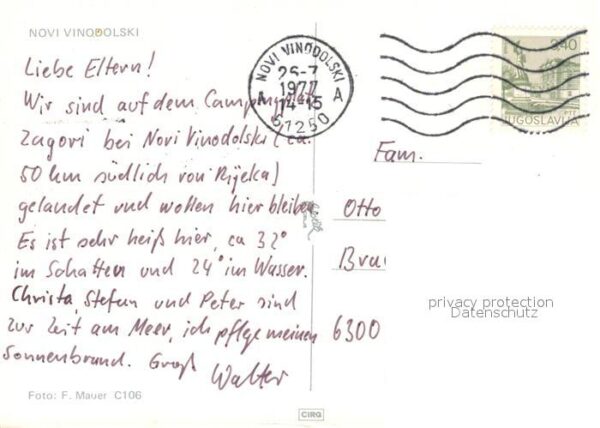 NOVI VINODOLSKI
Liebe Eltern!
Wir sind auf dem Campingplatz
Zagori bei Novi Vinodolski (ca.
50 km südlich von Rijeka)
gelandet und wollen hier bleiben.
Es ist sehr heiß hier, ca 32°
im Schatten und 24° im Wasser.
Christa, Stefan und Peter sind
zur Zeit am Meer, ich pflege meinen
Sonnenbrand. Gruß
Walter
Foto: F. Mauer C106
NOVI VINODOLSKI
26-7
1977
14-15
A A
51250
3,40
JUGOSLAVIJA
Fam.
Otto
6300
privacy protection
Datenschutz
CIRG